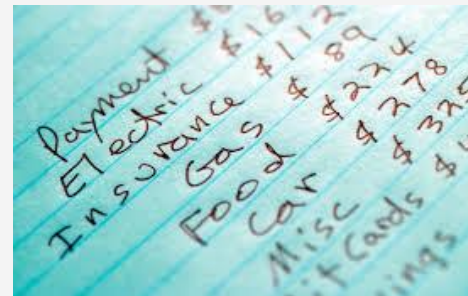 Payment $
Electric $16
Insurance $112
Gas $89
Food $224
Car $278
Misc $32
Cards $